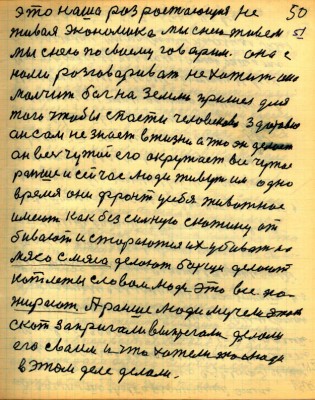 это наша разростающия не 50
живая экономика мы с ней живем 51
мы с нею по своему говорим. она с
нами розговариват не хотит она
молчит бог на Землю пришел для
того чтобы спасти человеков Здоровию
ан сам не знает в жизни а что он делает
он всех чужой его окружает все чужое
раньше и сейчас люди живут им одно
время они фронт у себя животное
имеют как без силную скотину от
бивают и стораются их убивать на
мясо с мяса делоют борчи делоют
котлеты словом люди это все по
жирают. А раньше люди мучели этот
скот запрегали выпрегали делали
его своим и что хотели это люди
в этом деле делали.